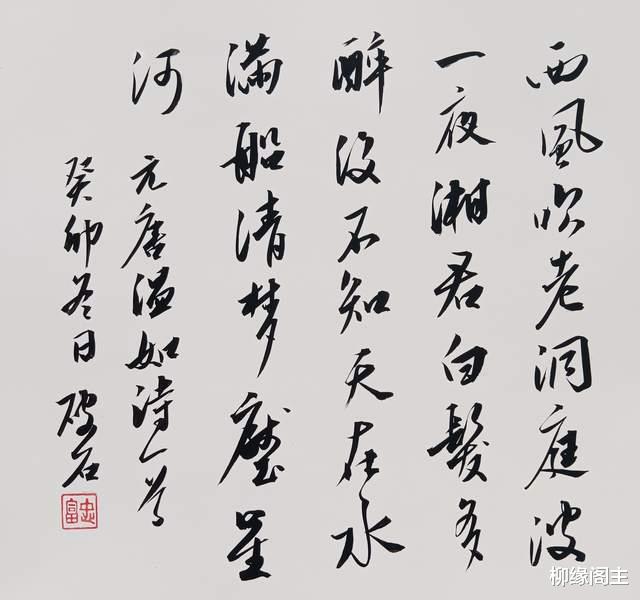 西風吹老洞庭波
一夜湘君白髮多
醉後不知天在水
滿船清夢壓星
河 元唐温如詩一首
癸卯冬日 破石
忠富
柳缘阁主